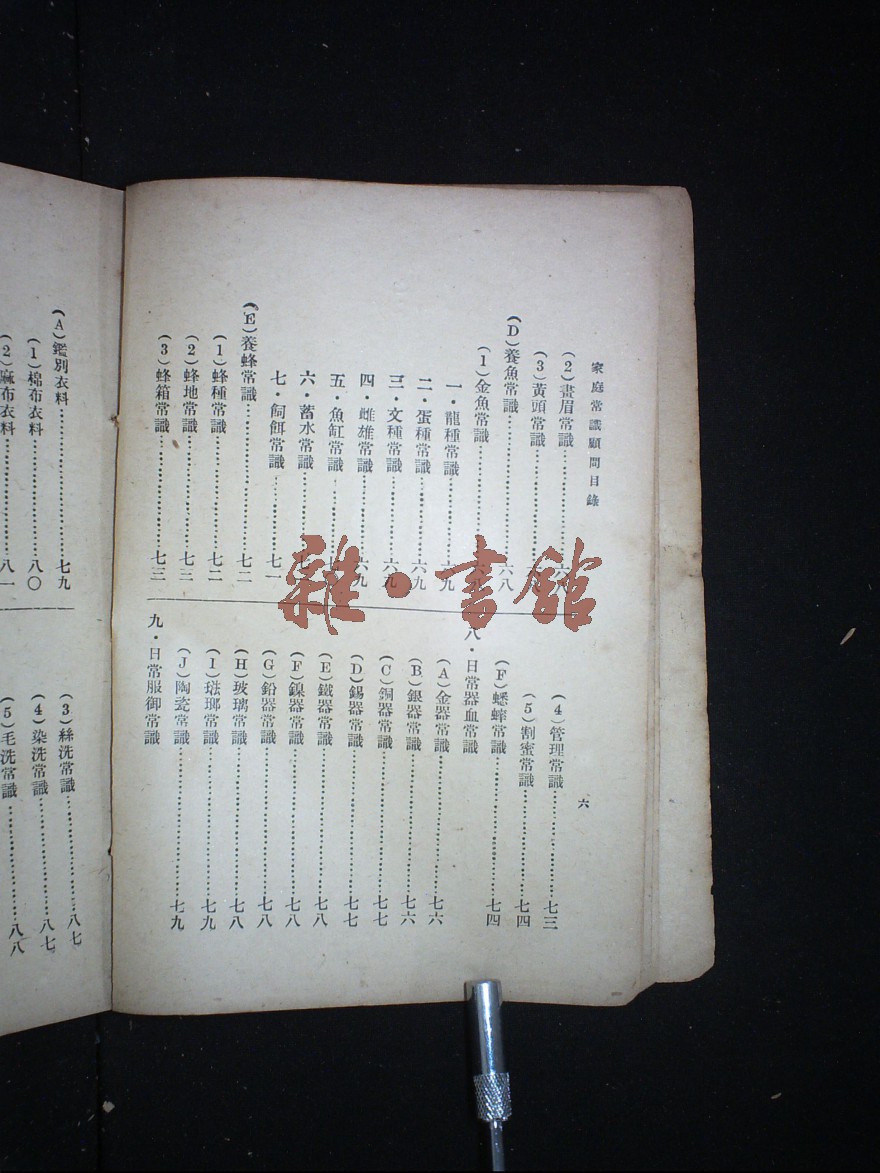 家庭常識顧問目錄
(2)畫眉常識
(3)黃頭常識
(D)養魚常識 六八
(1)金魚常識
一·龍種常識 六九
二·蛋種常識 六九
三·文種常識 六九
四·雌雄常識 六九
五·魚缸常識
六·蓄水常識
七·飼餌常識 七一
(E)養蜂常識 七二
(1)蜂種常識 七二
(2)蜂地常識 七三
(3)蜂箱常識 七三
六
(4)管理常識 七三
(5)割蜜常識 七四
(F)蟋蟀常識 七四
八·日常器血常識
(A)金器常識 七六
(B)銀器常識 七六
(C)銅器常識 七七
(D)錫器常識 七七
(E)鐵器常識 七八
(F)鎳器常識 七八
(G)鉛器常識 七八
(H)玻璃常識 七八
(I)琺瑯常識 七九
(J)陶瓷常識 七九
九·日常服御常識
(A)鑑別衣料 七九
(1)棉布衣料 八〇
(2)麻布衣料 八一
(3)絲洗常識 八七
(4)染洗常識 八七
(5)毛洗常識 八八
雜·書館